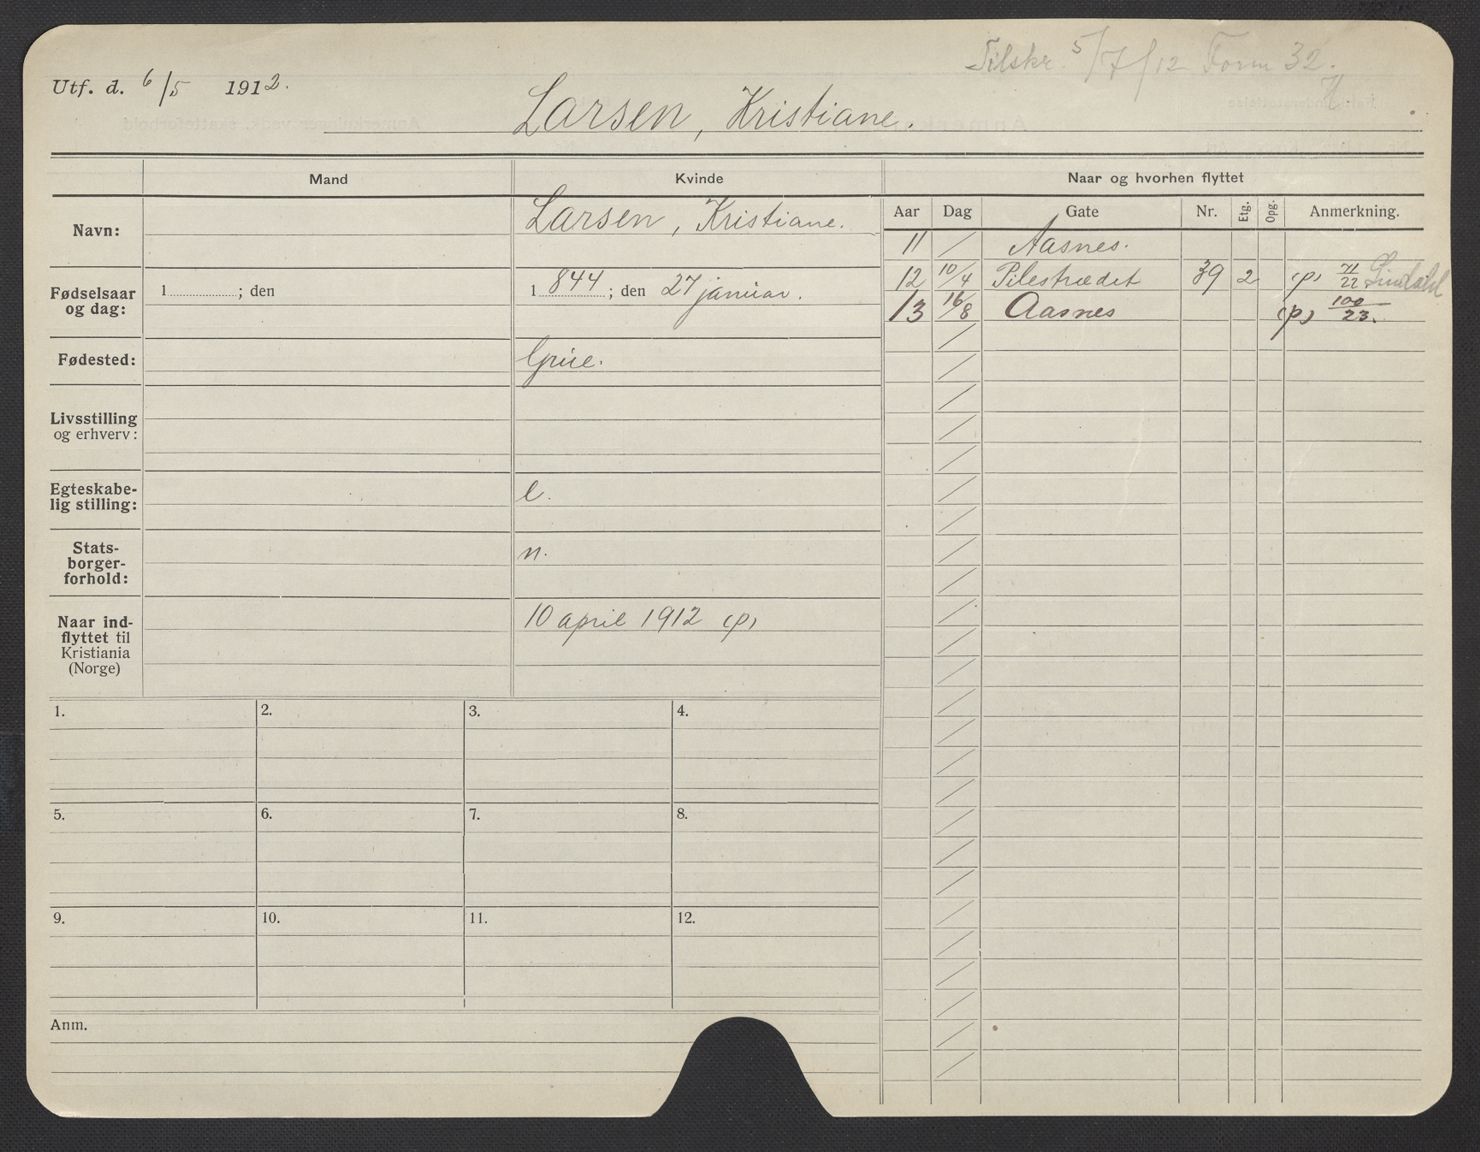 Utf. d. 6/5 1912.
Tilskr. 5/7/12 Form 32.
Larsen, Kristiane.
Mand
Kvinde
Naar og hvorhen flyttet
Aar Dag Gate Nr. Etg. Opg. Anmerkning.
Navn:
Larsen, Kristiane.
11 / Aasnes.
12 10/4 Pilestrædet 39 2 (p) 71/22
13 16/8 Aasnes (p) 100/23.
Fødselsaar og dag:
1 ; den
1 844 ; den 27 januar.
Fødested:
Grue.
Livsstilling og erhverv:
Egteskabe-
lig stilling:
e.
Stats-
borger-
forhold:
n.
Naar ind-
flyttet til
Kristiania
(Norge)
10 april 1912 (p)
1. 2. 3. 4.
5. 6. 7. 8.
9. 10. 11. 12.
Anm.